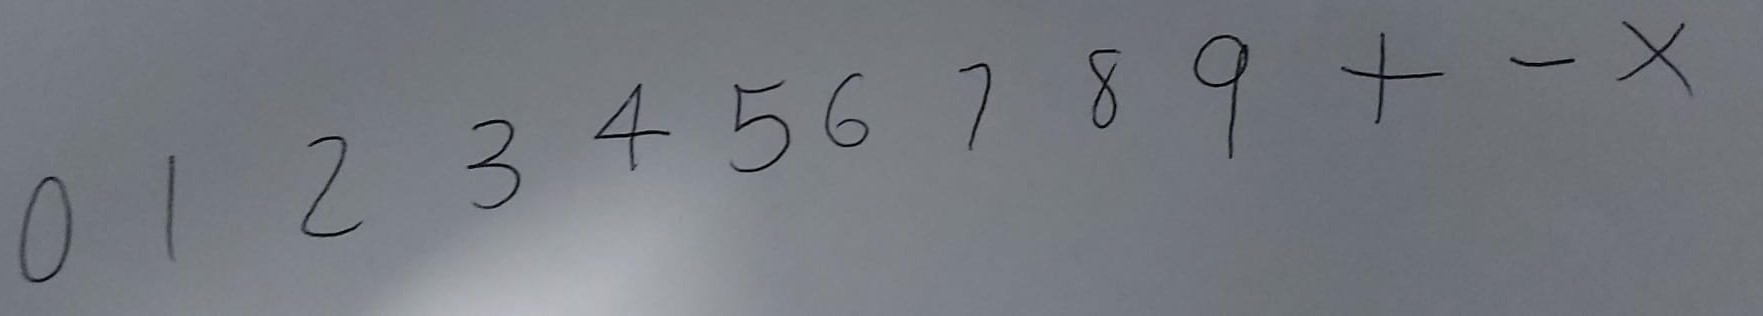 0 1 2 3 4 5 6 7 8 9 + - ×